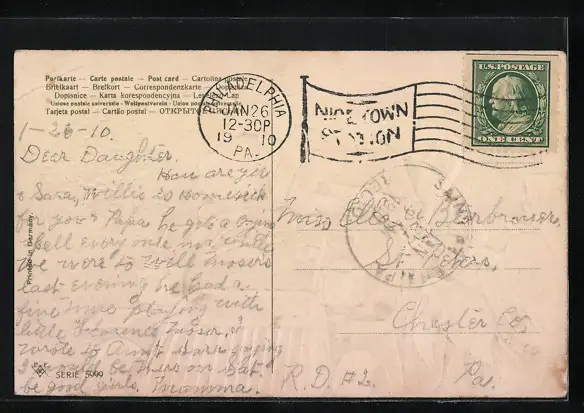 Postkarte — Carte postale — Post card — Cartolina postale
Briefkaart — Brefkort — Correspondenzkarte — Dopisnice
Dopisnice — Karta korespondencyjna — Levelező-Lap
Unione postale universale - Weltpostverein - Union postale universelle
Tarjeta postal — Cartão postal — ОТКРЫТОЕ
PHILADELPHIA
JAN 26
12-30P
19 10
PA.
NICETOWN
STATION
U.S. POSTAGE
ONE CENT
1-26-10.
Dear Daughter.
How are you
& Sara, Willie is
for you & Papa he got a
bell every one now while
we were to Will Mosers
last evening he had a
fine time playing with
little Clarence Moser, I
wrote to Aunt Sara
I would be there on Sat.
be good girls. Mamma.
Printed in Germany.
SERIE 5999
Miss
St. Peters,
Chester Co.
R.D. #2. Pa.